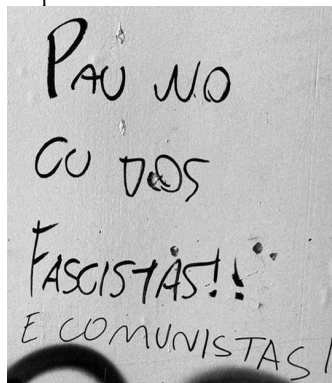 PAU NO
CU DOS
FASCISTAS!!
E COMUNISTAS!